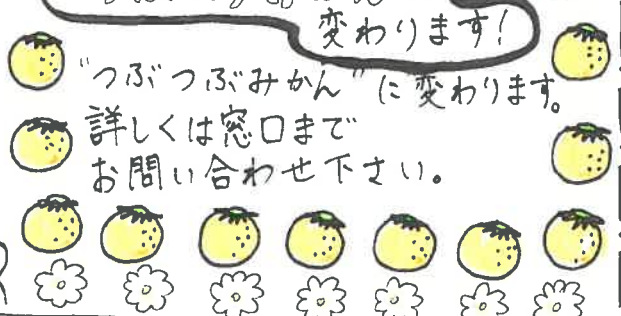 変わります!
"つぶつぶみかん"に変わります。
詳しくは窓口まで
お問い合わせ下さい。